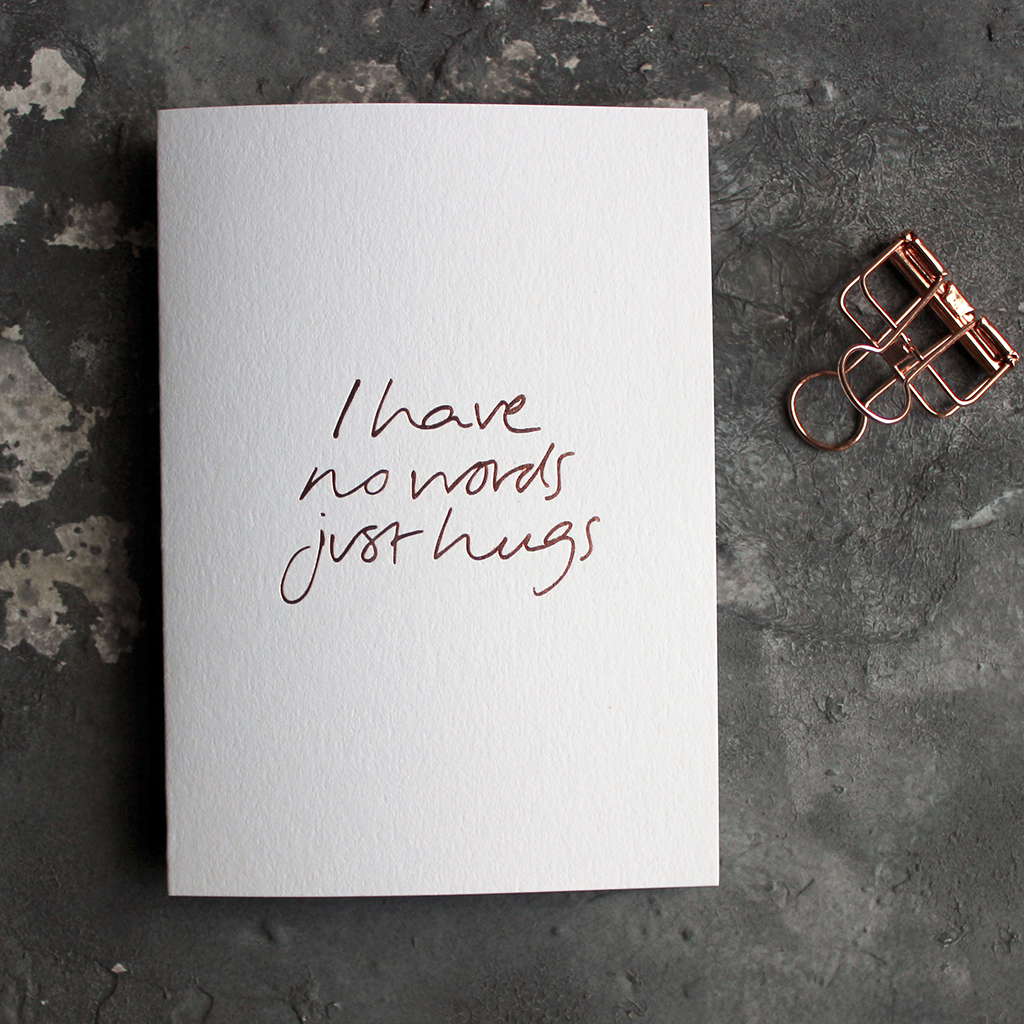 I have
no words
just hugs